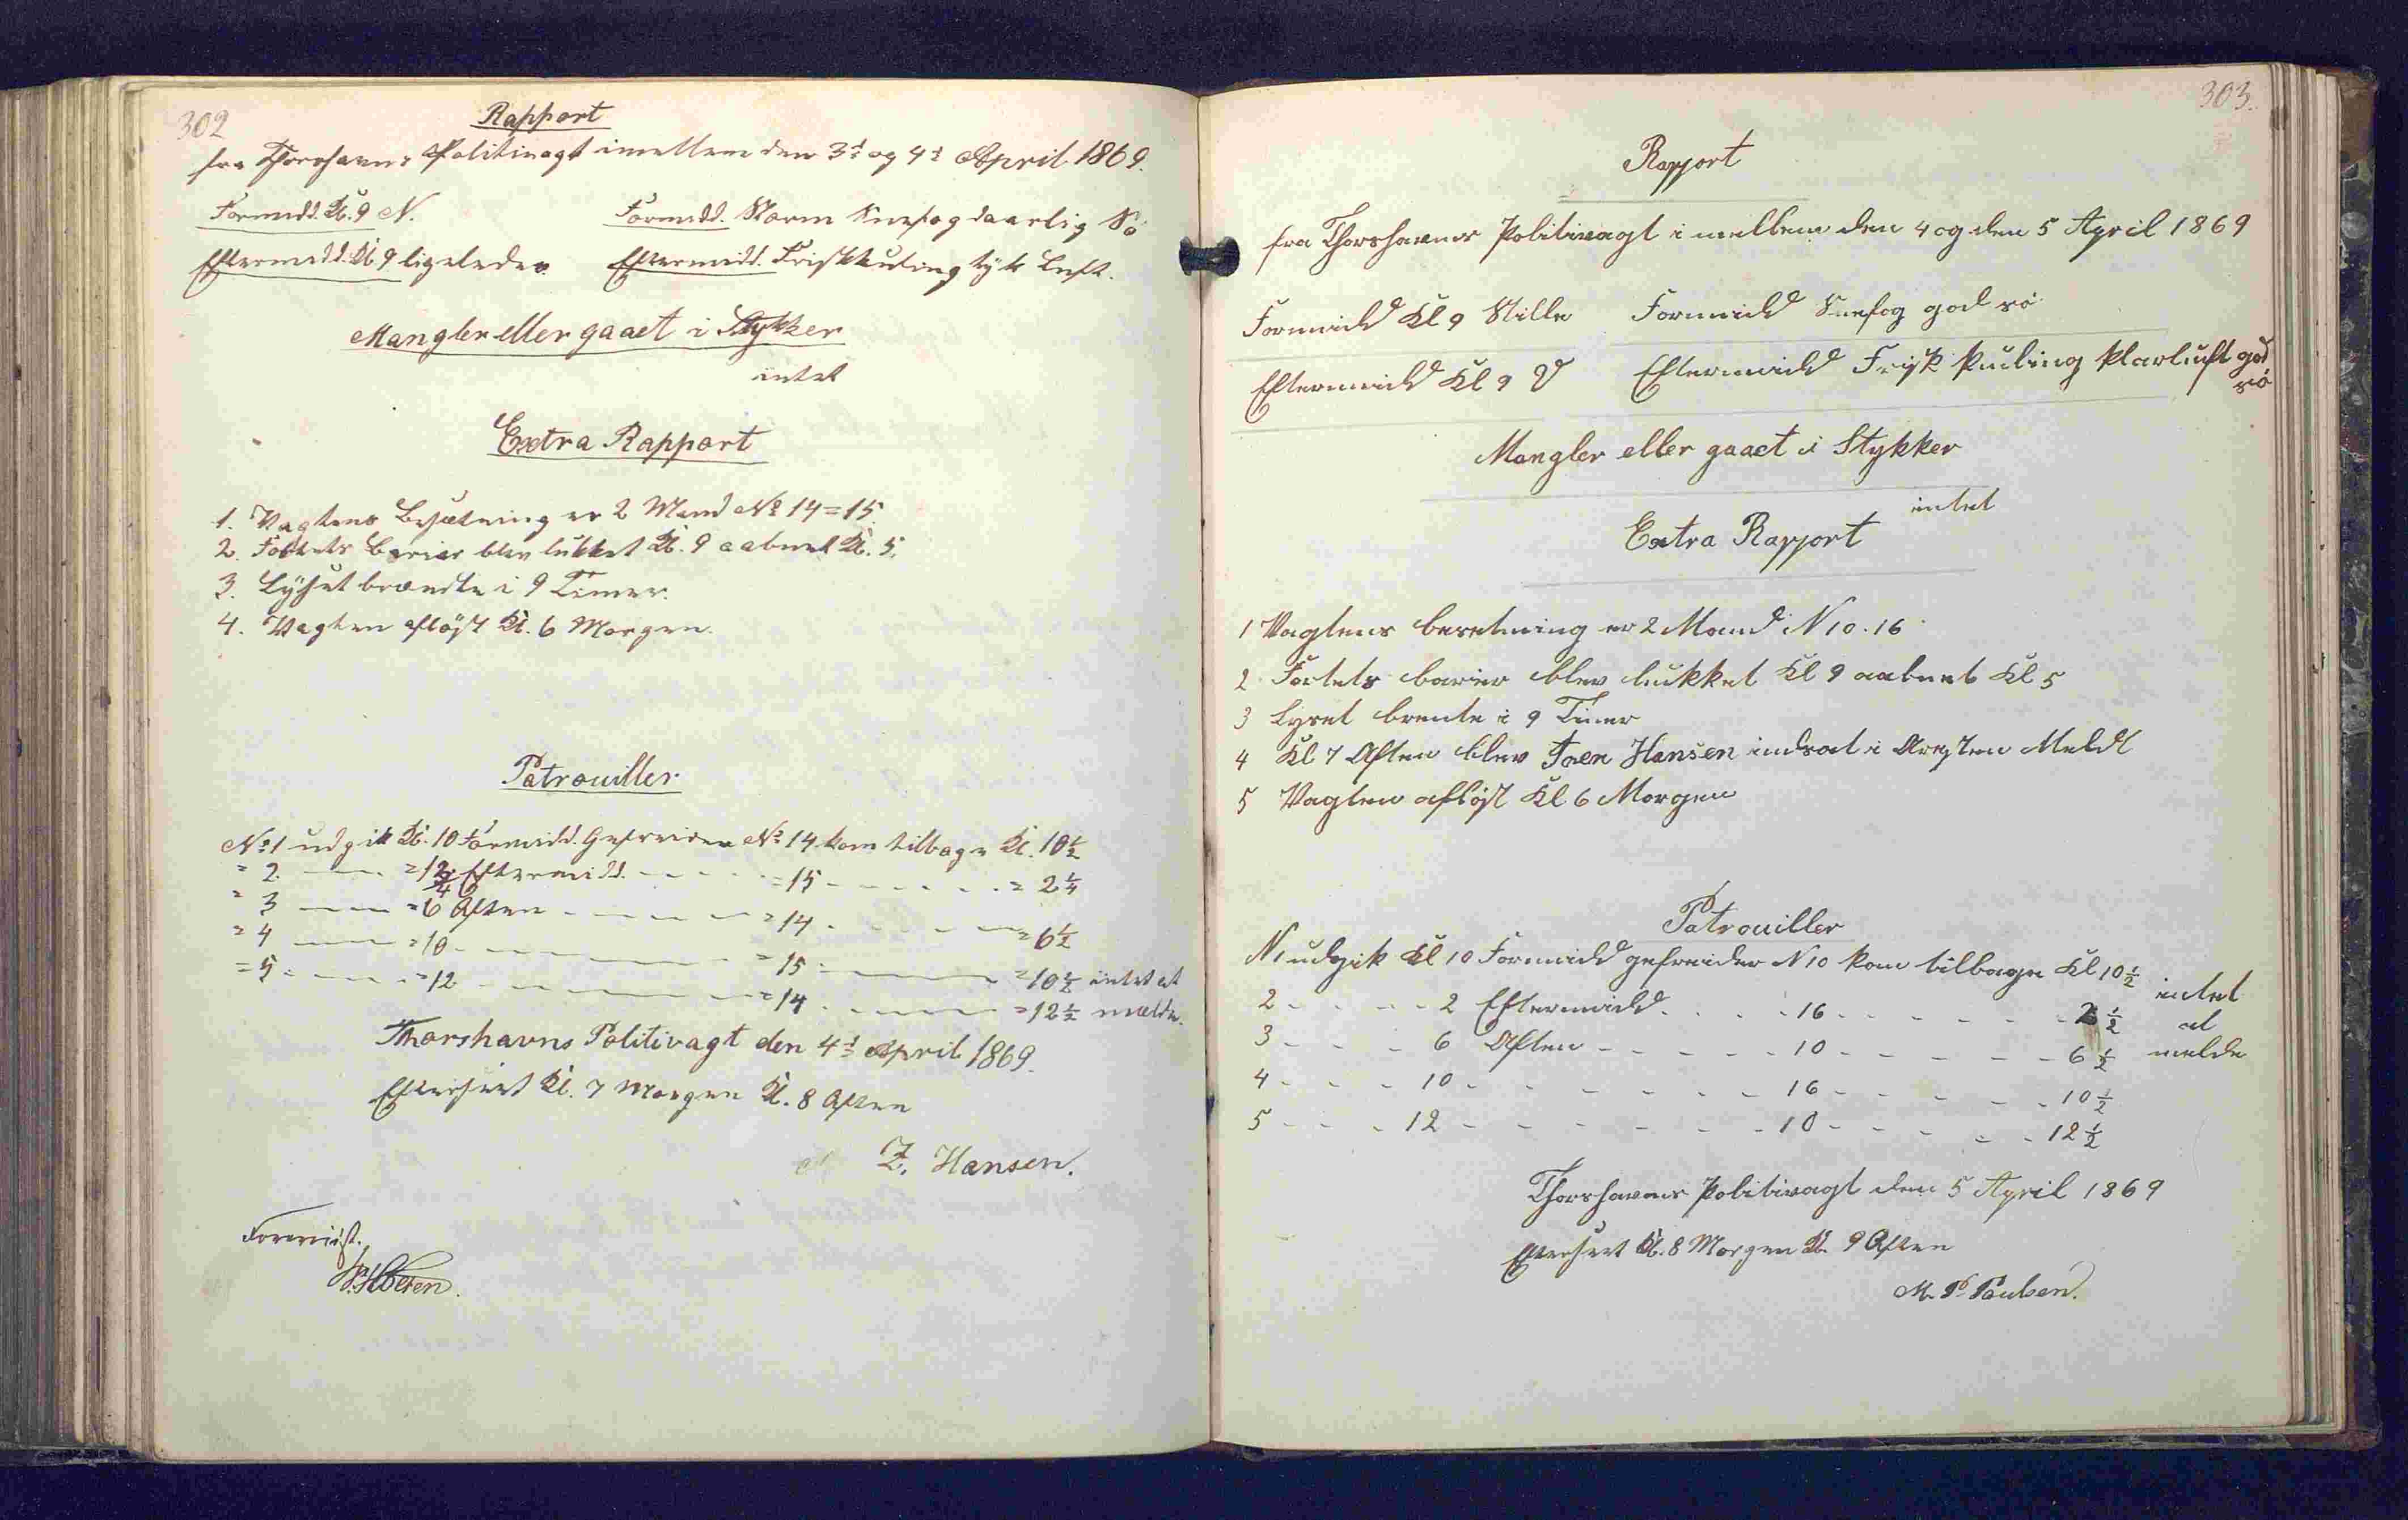 302
Rapport
fra Thorshavns Politivagt imellem den 3d og 4d April 1869.
Formidd. Kl. 9 N. Formidd. Storm Snefog daarlig Sö
Eftermidd. Kl. 9 ligeledes Eftermidd. Friskkuling tyk Luft.
Mangler eller gaaet i Stykker
intet
Extra Rapport
1. Vagtens Besætning er 2 Mand No 14 = 15.
2. Fortets Barier blev lukket Kl. 9 aabnet Kl. 5.
3. Lyset brændte i 9 Timer.
4. Vagten afløst Kl. 6 Morgen.
Patrouiller
No 1 udgik Kl. 10 Formidd. Gefreider No 14 kom tilbage Kl. 10 1/2
= 2. — = 1 3/4 Eftermidd. - - - = 15 - - - = 2 1/4
= 3 — = 6 Aften - - - = 14 - - - = 6 1/2
= 4 — = 10 - - - = 15 - - - = 10 1/2 intet at
= 5 - - - = 12 - - - = 14 - - - = 12 1/2 melde.
Thorshavns Politivagt den 4d April 1869.
Efterseet Kl. 7 Morgen Kl. 8 Aften
Z. Hansen.
Foreviist.
303.
Rapport
fra Thorshavns Politivagt i mellem den 4 og den 5 April 1869
Formidd Kl 9 Stille Formidd Snefog god sö
Eftermidd Kl 9 V Eftermidd Frisk kuling klarluft god
sö
Mangler eller gaaet i Stykker
intet
Extra Rapport
1 Vagtens besetning er 2 Mand N 10. 16
2 Fortets barier blev lukket Kl 9 aabnet Kl 5
3 Lyset brente i 9 Timer
4 Kl 7 Aften blev Joen Hansen indsat i Aresten Meldt
5 Vagten afløst Kl 6 Morgen
Patrouiller
N 1 udgik Kl 10 Formidd gefreider N 10 kom tilbage Kl 10 1/2 intet
2 - - - 2 Eftermidd - - - 16 - - - 2 1/2 at
3 - - - 6 Aften - - - 10 - - - 6 1/2 melde
4 - - - 10 - - - 16 - - - 10 1/2
5 - - - 12 - - - 10 - - - 12 1/2
Thorshavns Politivagt den 5 April 1869
Efterseet Kl. 8 Morgen Kl. 9 Aften
M. P. Paulsen.